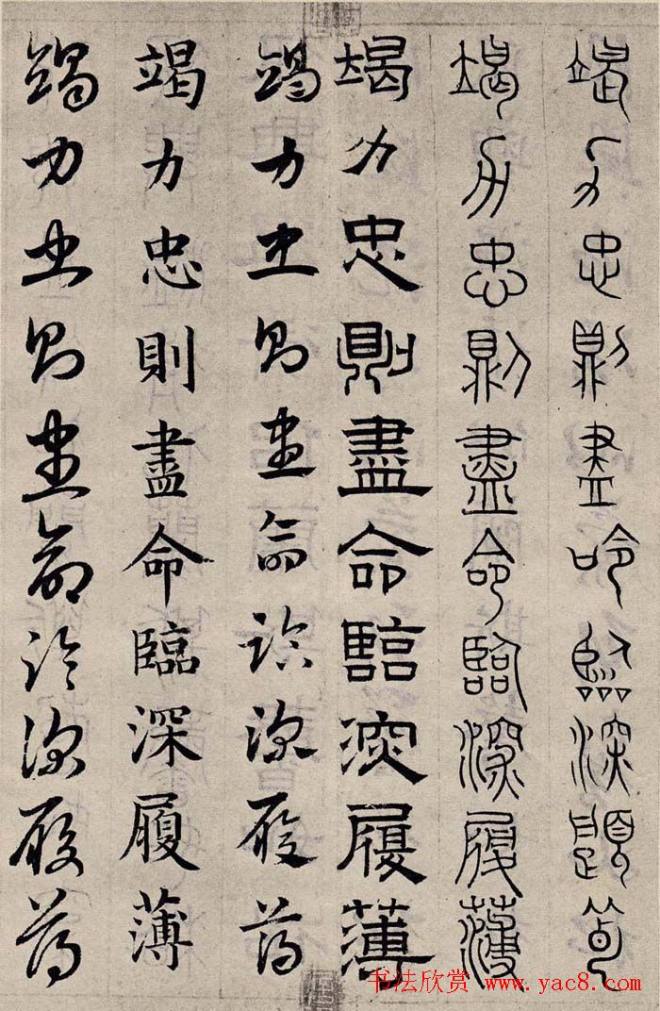 竭力忠則盡命臨深履薄
竭力忠則盡命臨深履薄
竭力忠則盡命臨深履薄
竭力忠則盡命臨深履薄
竭力忠則盡命臨深履薄
竭力忠則盡命臨深履薄
书法欣赏 www.yac8.com